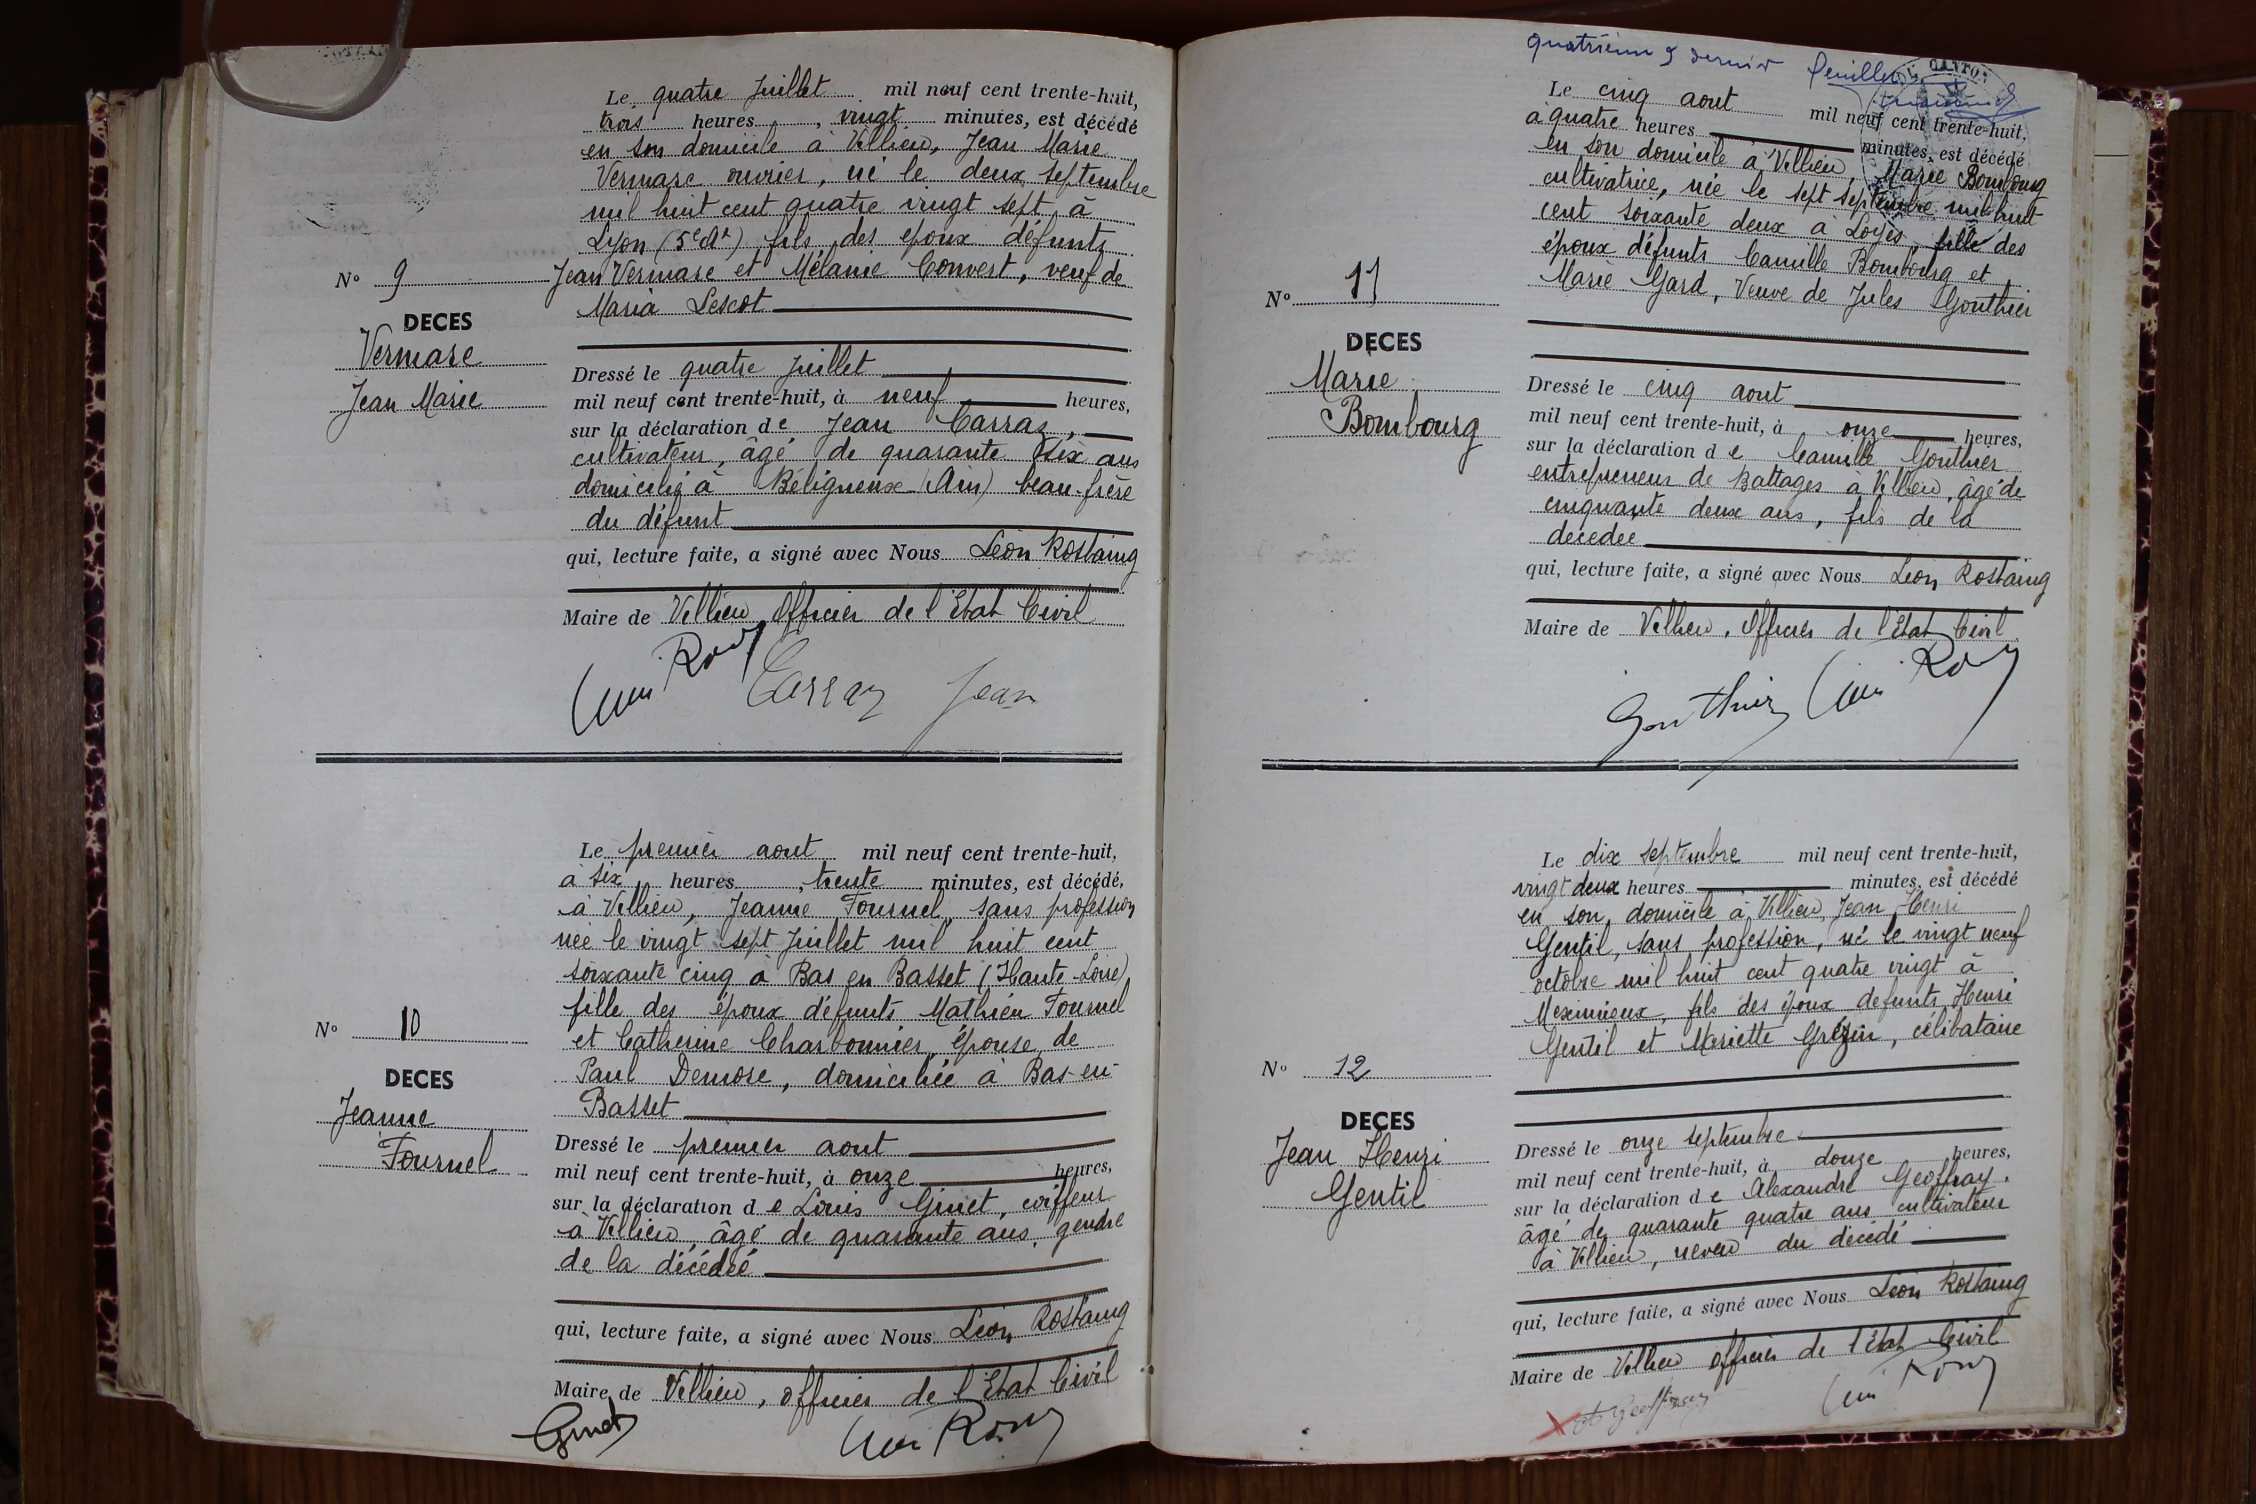 Le quatre Juillet mil neuf cent trente-huit,
trois heures, vingt minutes, est décédé
en son domicile à Villieu, Jean Marie
Vermare ouvrier, né le deux septembre
mil huit cent quatre vingt sept à
Lyon (5e At) fils des époux défunts
Jean Vermare et Mélanie Convert, veuf de
Maria Lescot
No 9
DECES
Vermare
Jean Marie
Dressé le quatre Juillet
mil neuf cent trente-huit, à neuf heures,
sur la déclaration de Jean Carraz,
cultivateur, âgé de quarante six ans
domicilié à Béligneux (Ain) beau-frère
du défunt
qui, lecture faite, a signé avec Nous Léon Rostaing
Maire de Villieu Officier de l'Etat Civil
Carraz Jean
Le premier aout mil neuf cent trente-huit,
à six heures, trente minutes, est décédé,
à Villieu, Jeanne Fournel, sans profession
née le vingt sept Juillet mil huit cent
soixante cinq à Bas en Basset (Haute-Loire)
fille des époux défunts Mathieu Fournel
et Catherine Charbonnier, épouse de
Paul Demore, domiciliée à Bas-en-
Basset
No 10
DECES
Jeanne
Fournel
Dressé le premier aout
mil neuf cent trente-huit, à onze heures,
sur la déclaration de Louis Ginet, coiffeur
à Villieu, âgé de quarante ans, gendre
de la décédée
qui, lecture faite, a signé avec Nous Léon Rostaing
Maire de Villieu, officier de l'Etat Civil
Ginet
quatrième & dernier feuillet
CANTON
Le cinq aout mil neuf cent trente-huit,
à quatre heures minutes, est décédé
en son domicile à Villieu, Marie Bombourg
cultivatrice, née le sept septembre mil huit
cent soixante deux à Loyes, fille des
époux défunts Camille Bombourg et
Marie Gard, Veuve de Jules Gonthier
No 11
DECES
Marie
Bombourg
Dressé le cinq aout
mil neuf cent trente-huit, à onze heures,
sur la déclaration de Camille Gonthier
entrepreneur de Battages à Villieu, âgé de
cinquante deux ans, fils de la
décédée
qui, lecture faite, a signé avec Nous Léon Rostaing
Maire de Villieu, Officier de l'Etat Civil
Gonthier
Le dix septembre mil neuf cent trente-huit,
vingt deux heures minutes, est décédé
en son domicile à Villieu, Jean Henri
Gentil, sans profession, né le vingt neuf
octobre mil huit cent quatre vingt à
Meximieux, fils des époux défunts Henri
Gentil et Mariette Grézin, célibataire
No 12
DECES
Jean Henri
Gentil
Dressé le onze septembre
mil neuf cent trente-huit, à douze heures,
sur la déclaration de Alexandre Geoffray,
âgé de quarante quatre ans cultivateur
à Villieu, neveu du décédé
qui, lecture faite, a signé avec Nous Léon Rostaing
Maire de Villieu officier de l'Etat Civil
Geoffray